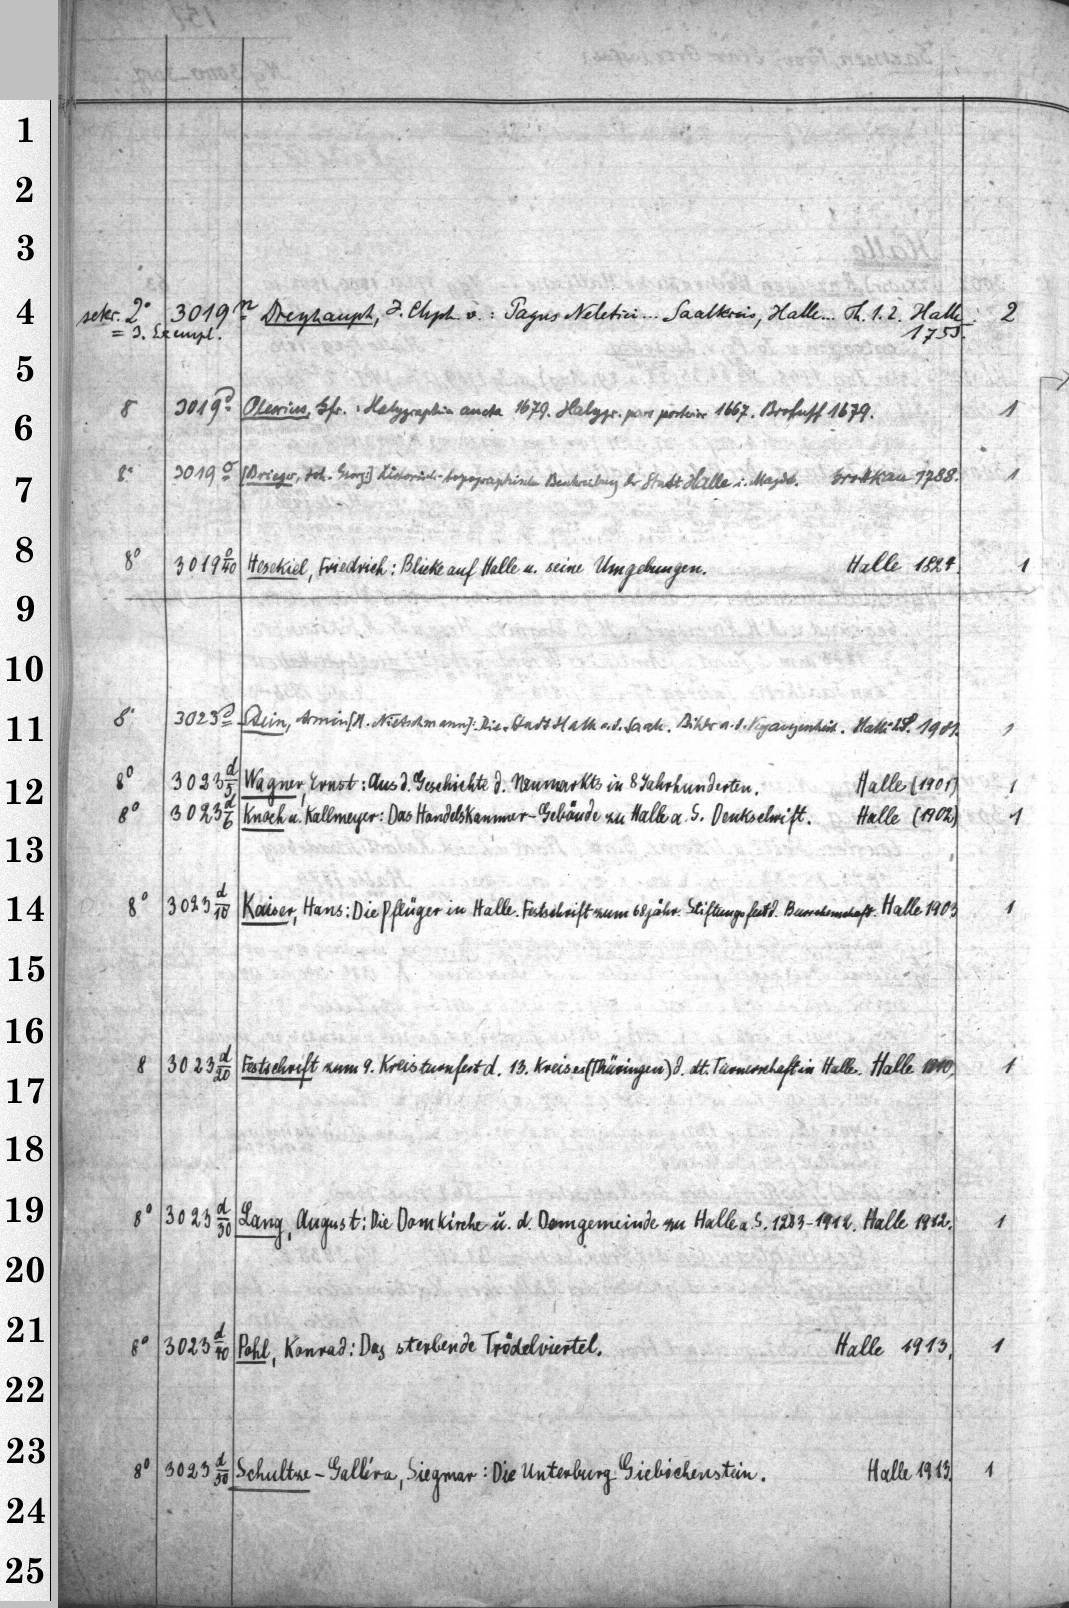 1
2
3
4
sekr. 2° 3019 n Dreyhaupt, J. Chph. v.: Pagus Neletici... Saalkreis, Halle... Th. 1. 2. Halle 2
= 3. Exempl. 1755.
5
8 3019 Olearius, Gfr.: Halygraphia aucta 1679. Halygr. pars posterior 1667. 1679. 1
6
8° 3019 o [Brieger, Joh. Georg:] Historisch-topographische Beschreibung der Stadt Halle i. Magdb. Grottkau 1788. 1
7
8
8° 3019 o/40 Hesekiel, Friedrich: Blicke auf Halle u. seine Umgebungen. Halle 1824. 1
9
10
11
8° 3023 Stein, Armin [H. Nietschmann]: Die Stadt Halle a. d. Saale. Bilder a. d. Vergangenheit. Halle 1901. 1
12
8° 3023 d/5 Wagner, Ernst: Aus d. Geschichte d. Neumarkts in 8 Jahrhunderten. Halle (1901) 1
8° 3023 d/6 Knoch u. Kallmeyer: Das Handelskammer-Gebäude zu Halle a. S. Denkschrift. Halle (1902) 1
13
14
8° 3023 d/10 Kaiser, Hans: Die Pflüger in Halle. Festschrift zum 68jähr. Stiftungsfest d. Burschenschaft. Halle 1903 1
15
16
8 3023 d/20 Festschrift zum 9. Kreisturnfest d. 13. Kreises (Thüringen) d. dt. Turnerschaft in Halle. Halle 1910, 1
17
18
19
8° 3023 d/30 Lang, August: Die Domkirche u. d. Domgemeinde zu Halle a. S. 1283-1912. Halle 1912. 1
20
21
8° 3023 d/40 Pohl, Konrad: Das sterbende Trödelviertel. Halle 1913, 1
22
23
8° 3023 d/50 Schultze-Galléra, Siegmar: Die Unterburg Giebichenstein. Halle 1913. 1
24
25